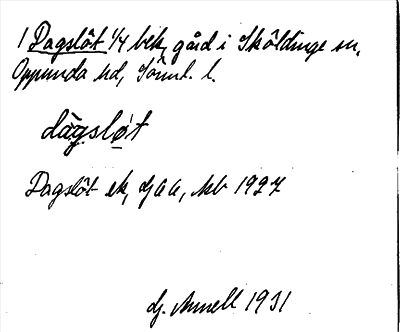 1 Dagslöt 1/4 bek, gård i Sköldinge sn.
Oppunda hd, Sörml. l.
dàgsløt
Dagslöt ek, dj a a, kb 1927
dj. Annell 1931